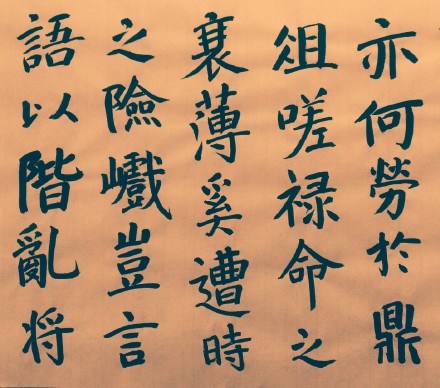 亦何勞於鼎
俎嗟禄命之
衰薄奚遭時
之險巇豈言
語以階亂将